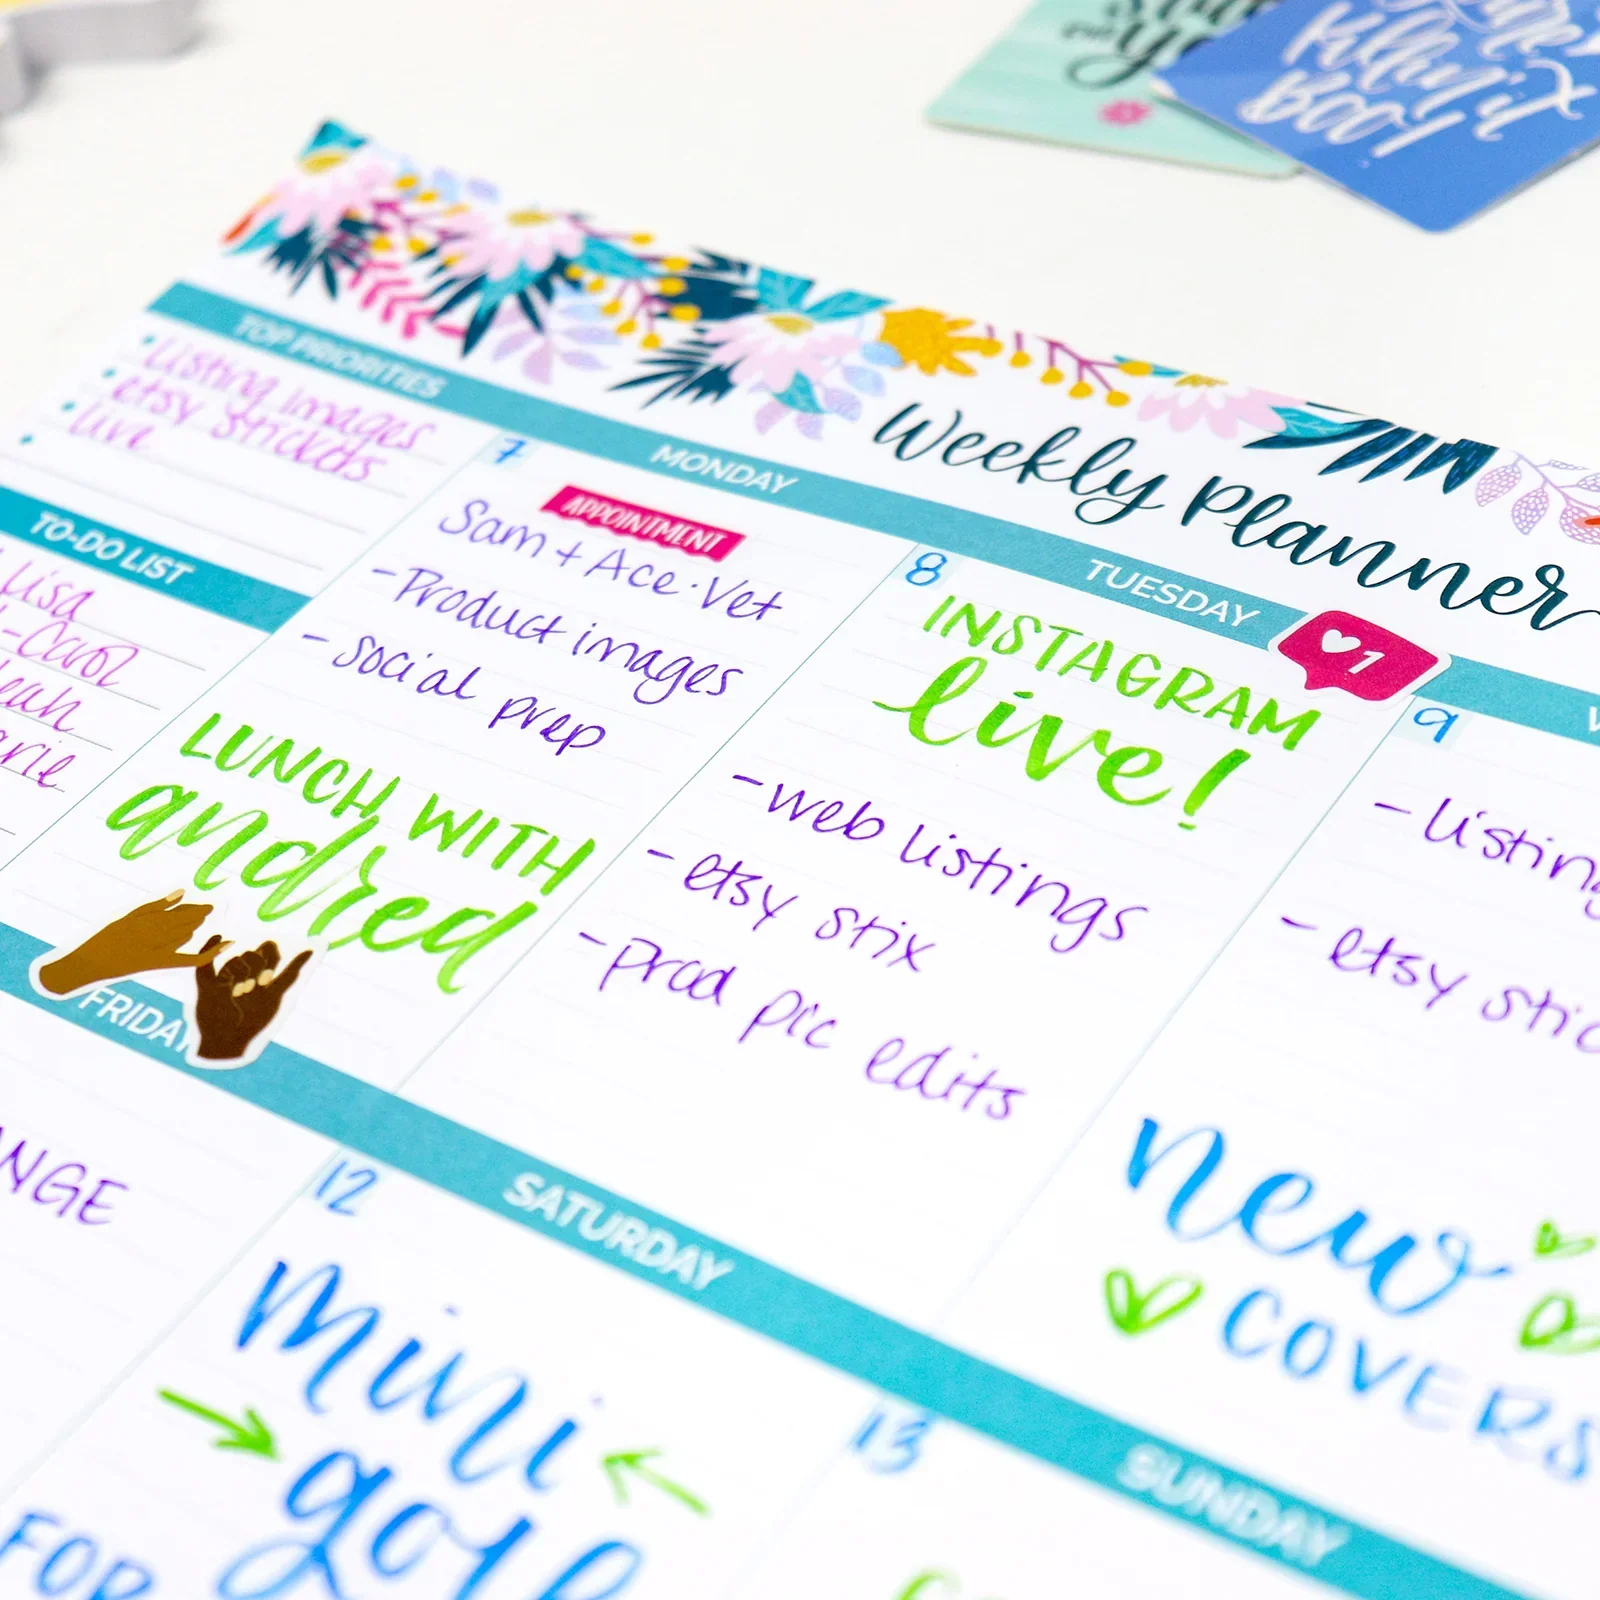 Killin' it
BOO!
Weekly Planner
TOP PRIORITIES
Listing images
etsy stickers
live
TO-DO LIST
Lisa
-Carol
MONDAY
7
APPOINTMENT
Sam + Ace · Vet
- Product images
- social prep
LUNCH WITH
andrea
TUESDAY
8
INSTAGRAM
live!
1
- web listings
- etsy stix
- prod pic edits
9
- listing
- etsy stic
new
COVERS
FRIDAY
ANGE
SATURDAY
12
mini
golf
FOR
SUNDAY
13